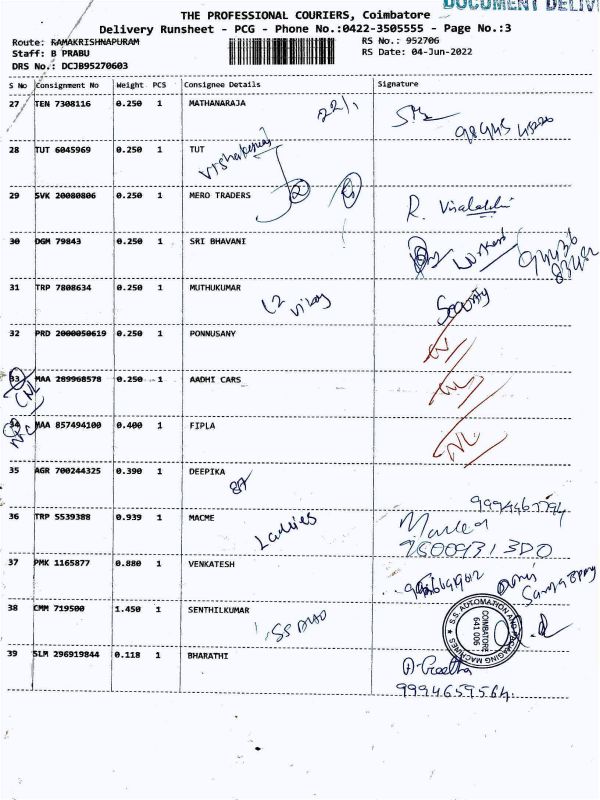 DOCUMENT DELIV
THE PROFESSIONAL COURIERS, Coimbatore
Delivery Runsheet - PCG - Phone No.:0422-3505555 - Page No.:3
Route: RAMAKRISHNAPURAM
RS No.: 952706
Staff: B PRABU
RS Date: 04-Jun-2022
DRS No.: DCJB95270603
S No Consignment No Weight PCS Consignee Details Signature
27 TEN 7308116 0.250 1 MATHANARAJA
22/1
28 TUT 6045969 0.250 1 TUT
29 SVK 20080806 0.250 1 MERO TRADERS
R. Visalatchi
30 DGM 79843 0.250 1 SRI BHAVANI
31 TRP 7808634 0.250 1 MUTHUKUMAR
L2 Vikay
Security
32 PRD 2000050619 0.250 1 PONNUSANY
NL
33 MAA 289968578 0.250 1 AADHI CARS
CNL
NL
34 MAA 857494100 0.400 1 FIPLA
NL
35 AGR 700244325 0.390 1 DEEPIKA
36 TRP 5539388 0.939 1 MACME
Ladies
37 PMK 1165877 0.880 1 VENKATESH
38 CMM 719500 1.450 1 SENTHILKUMAR
S.S. AUTOMATION AND PACKAGING MACHINES
COIMBATORE
641 006
39 SLM 296919844 0.118 1 BHARATHI
A. Geetha
9994659564